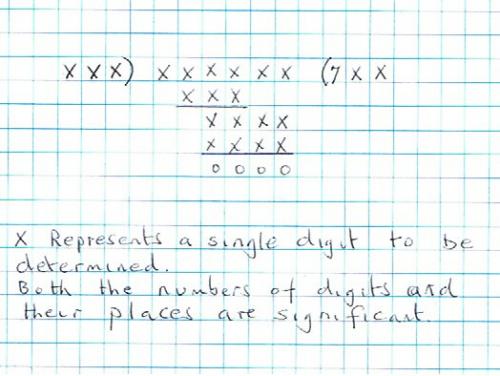 x x x) x x x x x x (7 x x
x x x
x x x x
x x x x
0 0 0 0
X Represents a single digit to be
determined.
Both the numbers of digits and
their places are significant.